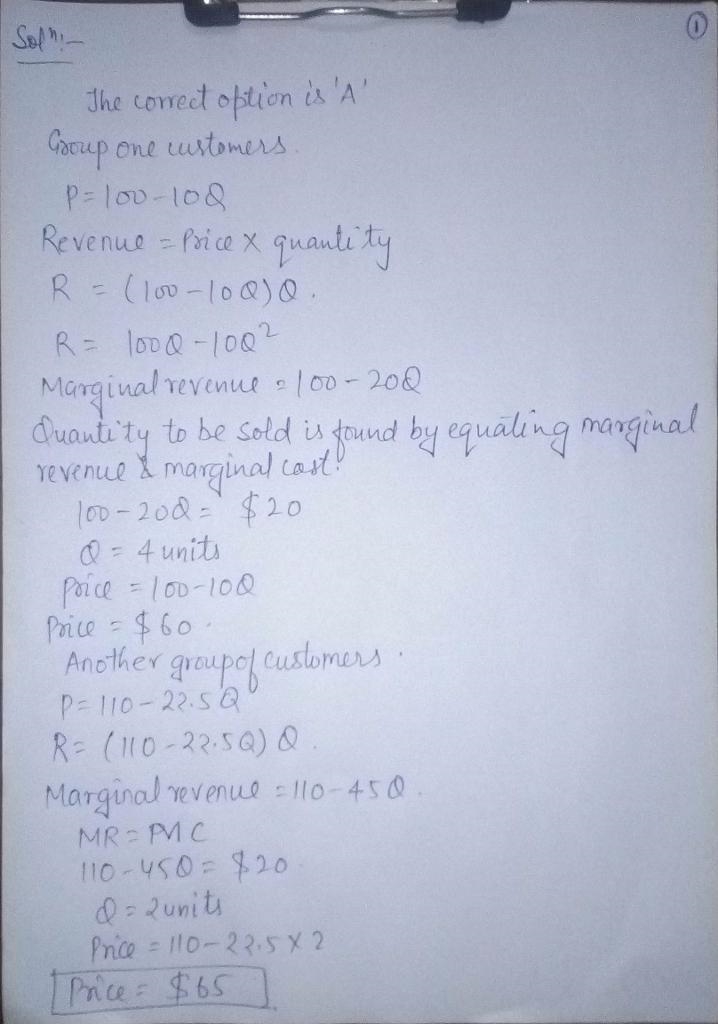 ①
Solⁿ:-
The correct option is 'A'
Group one customers.
P=100-10Q
Revenue = Price x quantity
R = (100-10Q)Q.
R = 100Q-10Q²
Marginal revenue = 100-20Q
Quantity to be sold is found by equating marginal
revenue & marginal cost.
100-20Q = $20
Q = 4 units
price = 100-10Q
Price = $60.
Another group of customers.
P=110-22.5Q
R= (110-22.5Q) Q.
Marginal revenue = 110-45Q.
MR = MC
110-45Q = $20
Q = 2 units
Price = 110-22.5 x 2
Price = $65